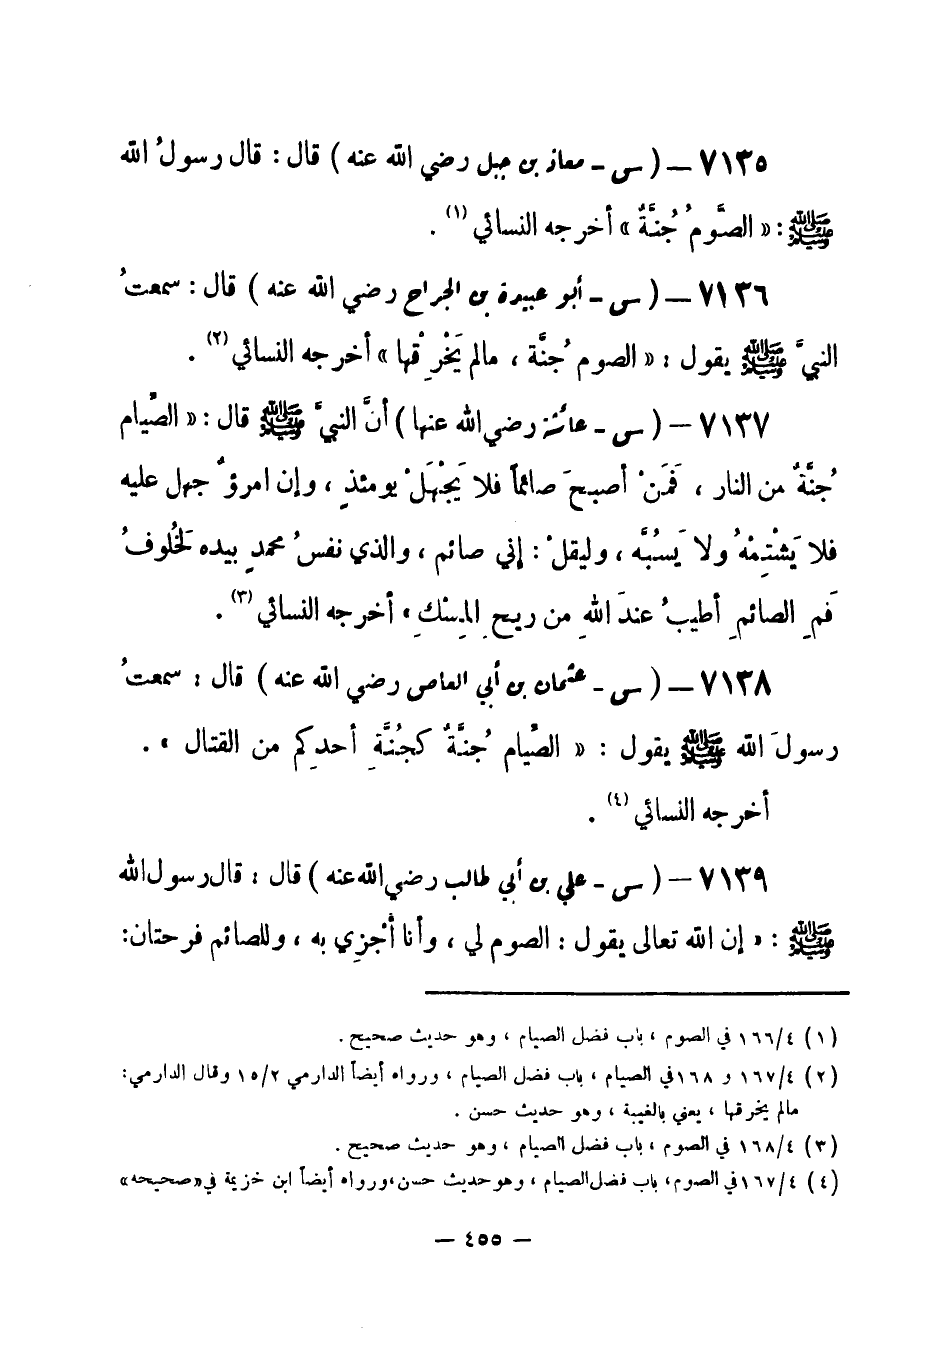 ٧١٣٥ – ( س - معاذ بن جبل رضي الله عنه ) قال : قال رسولُ الله
ﷺ : « الصَّومُ جُنَّةٌ » أخرجه النسائي (١) .
٧١٣٦ – ( س - أبو عبيدة بن الجراح رضي الله عنه ) قال : سمعتُ
النبيَّ ﷺ يقول : « الصوم جُنَّة ، مالم يَخْرِقْها » أخرجه النسائي (٢) .
٧١٣٧ – ( س - عائشة رضي الله عنها ) أنَّ النبيَّ ﷺ قال : « الصِّيام
جُنَّةٌ من النار ، فَمَنْ أصبحَ صائماً فلا يَجْهَلْ يومئذٍ ، وإن امرؤٌ جهل عليه
فلا يَشْتِمْهُ ولا يَسُبَّه ، وليقلْ : إني صائم ، والذي نفسُ محمدٍ بيده لَخُلوفُ
فَمِ الصائمِ أطيبُ عندَ اللهِ من ريحِ المِسْكِ » أخرجه النسائي (٣) .
٧١٣٨ – ( س - عثمان بن أبي العاص رضي الله عنه ) قال : سمعتُ
رسولَ الله ﷺ يقول : « الصِّيام جُنَّةٌ كجُنَّةِ أحدِكم من القتال » .
أخرجه النسائي (٤) .
٧١٣٩ – ( س - علي بن أبي طالب رضي الله عنه ) قال : قال رسول الله
ﷺ : « إن الله تعالى يقول : الصوم لي ، وأنا أَجْزِي به ، وللصائم فرحتان:
(١) ١٦٦/٤ في الصوم ، باب فضل الصيام ، وهو حديث صحيح .
(٢) ١٦٧/٤ و ١٦٨ في الصيام ، باب فضل الصيام ، ورواه أيضاً الدارمي ١٥/٢ وقال الدارمي:
مالم يخرقها ، يعني بالغيبة ، وهو حديث حسن .
(٣) ١٦٨/٤ في الصوم ، باب فضل الصيام ، وهو حديث صحيح .
(٤) ١٦٧/٤ في الصوم، باب فضل الصيام ، وهو حديث حسن،ورواه أيضاً ابن خزيمة في «صحيحه»
– ٤٥٥ –